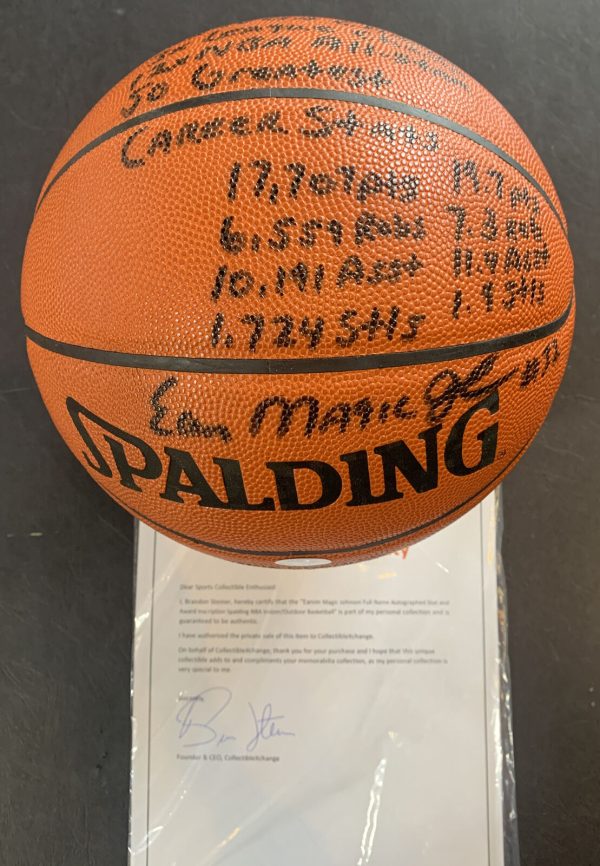 NBA All Star
50 Greatest
Career Stats
17,707 pts 19.7 pts
6,559 Rebs 7.2 Reb
10,141 Asst 11.4 Asst
1,724 Stls 1.9 Stls
Earvin Magic Johnson #32
SPALDING
Dear Sports Collectible Enthusiast
I, Brandon Steiner, hereby certify that the "Earvin Magic Johnson Full Name Autographed Stat and
Award Inscription Spalding NBA Indoor/Outdoor Basketball" is part of my personal collection and is
guaranteed to be authentic.
I have authorized the private sale of this item to CollectibleXchange.
On behalf of CollectibleXchange, thank you for your purchase and I hope that this unique
collectible adds to and compliments your memorabilia collection, as my personal collection is
very special to me.
Sincerely,
Founder & CEO, CollectibleXchange